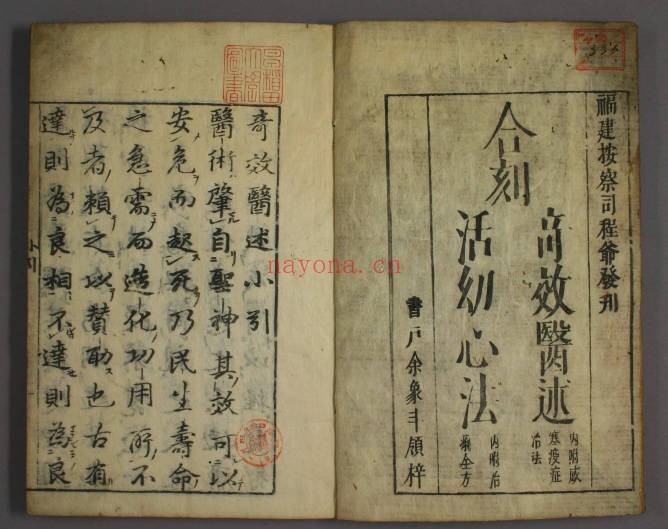 福建按察司程爺發刊
合刻
奇效醫述
内附感
寒疫症
治法
活幼心法
内附治
痢全方
書戶余象斗領梓
奇效醫述小引
醫術肇自聖神其效可以
安危而起死乃民生壽命
之急需而造化功用所不
及者賴之以贊助也古有
達則為良相不達則為良
小引
nayona.cn